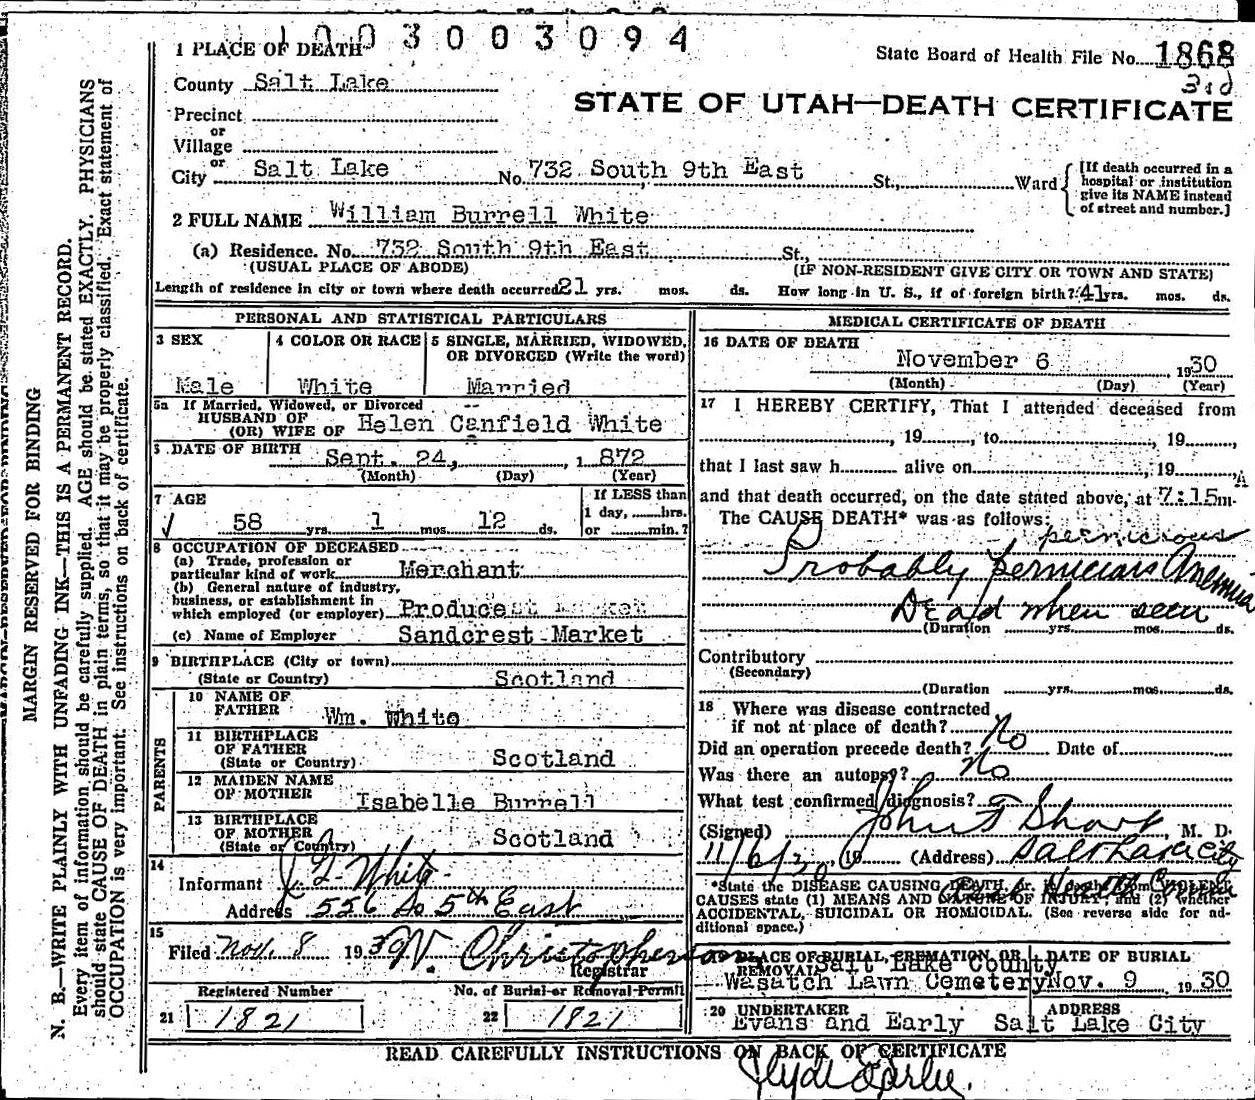 1003003094
1 PLACE OF DEATH
State Board of Health File No. 1868
3rd
County Salt Lake
STATE OF UTAH—DEATH CERTIFICATE
Precinct
or
Village
or
City Salt Lake No. 732 South 9th East St., Ward
[If death occurred in a
hospital or institution
give its NAME instead
of street and number.]
2 FULL NAME William Burrell White
(a) Residence. No. 732 South 9th East St.,
(USUAL PLACE OF ABODE) (IF NON-RESIDENT GIVE CITY OR TOWN AND STATE)
Length of residence in city or town where death occurred 21 yrs. mos. ds. How long in U. S., if of foreign birth? 41 yrs. mos. ds.
PERSONAL AND STATISTICAL PARTICULARS
3 SEX
Male
4 COLOR OR RACE
White
5 SINGLE, MARRIED, WIDOWED,
OR DIVORCED (Write the word)
Married
5a If Married, Widowed, or Divorced
HUSBAND OF
(OR) WIFE OF Helen Canfield White
DATE OF BIRTH Sept. 24, 1872
(Month) (Day) (Year)
7 AGE
58 yrs. 1 mos. 12 ds.
If LESS than
1 day, hrs.
or min.?
8 OCCUPATION OF DECEASED
(a) Trade, profession or
particular kind of work Merchant
(b) General nature of industry,
business, or establishment in
which employed (or employer) Produce Market
(c) Name of Employer Sandcrest Market
9 BIRTHPLACE (City or town)
(State or Country) Scotland
PARENTS
10 NAME OF
FATHER Wm. White
11 BIRTHPLACE
OF FATHER
(State or Country) Scotland
12 MAIDEN NAME
OF MOTHER Isabelle Burrell
13 BIRTHPLACE
OF MOTHER
(State or Country) Scotland
14
Informant J. G. White
Address 556 So 5th East
15
Filed Nov. 8 1930 W. Christopherson
Registrar
Registered Number No. of Burial or Removal Permit
21 1821 22 1821
MEDICAL CERTIFICATE OF DEATH
16 DATE OF DEATH
November 6 1930
(Month) (Day) (Year)
17 I HEREBY CERTIFY, That I attended deceased from
, 19 , to , 19 ,
that I last saw h alive on , 19 ,
A
and that death occurred, on the date stated above, at 7:15m.
The CAUSE DEATH* was as follows:
pernicious
Probably Pernicians Anemia
Dead when seen
(Duration yrs. mos. ds.
Contributory
(Secondary)
(Duration yrs. mos. ds.
18 Where was disease contracted
if not at place of death?
Did an operation precede death? No Date of
Was there an autopsy? No
What test confirmed diagnosis?
(Signed) John F Sharp, M. D.
11/6/30, 19 (Address) Salt Lake City
*State the DISEASE CAUSING DEATH, or, in deaths from VIOLENT
CAUSES state (1) MEANS AND NATURE OF INJURY; and (2) whether
ACCIDENTAL, SUICIDAL OR HOMICIDAL. (See reverse side for ad-
ditional space.)
19 PLACE OF BURIAL, CREMATION, OR
REMOVAL Salt Lake County
Wasatch Lawn Cemetery
DATE OF BURIAL
Nov. 9 1930
20 UNDERTAKER
Evans and Early
ADDRESS
Salt Lake City
READ CAREFULLY INSTRUCTIONS ON BACK OF CERTIFICATE
MARGIN RESERVED FOR BINDING
N. B.—WRITE PLAINLY WITH UNFADING INK—THIS IS A PERMANENT RECORD.
Every item of information should be carefully supplied. AGE should be stated EXACTLY. PHYSICIANS
should state CAUSE OF DEATH in plain terms, so that it may be properly classified. Exact statement of
OCCUPATION is very important. See instructions on back of certificate.